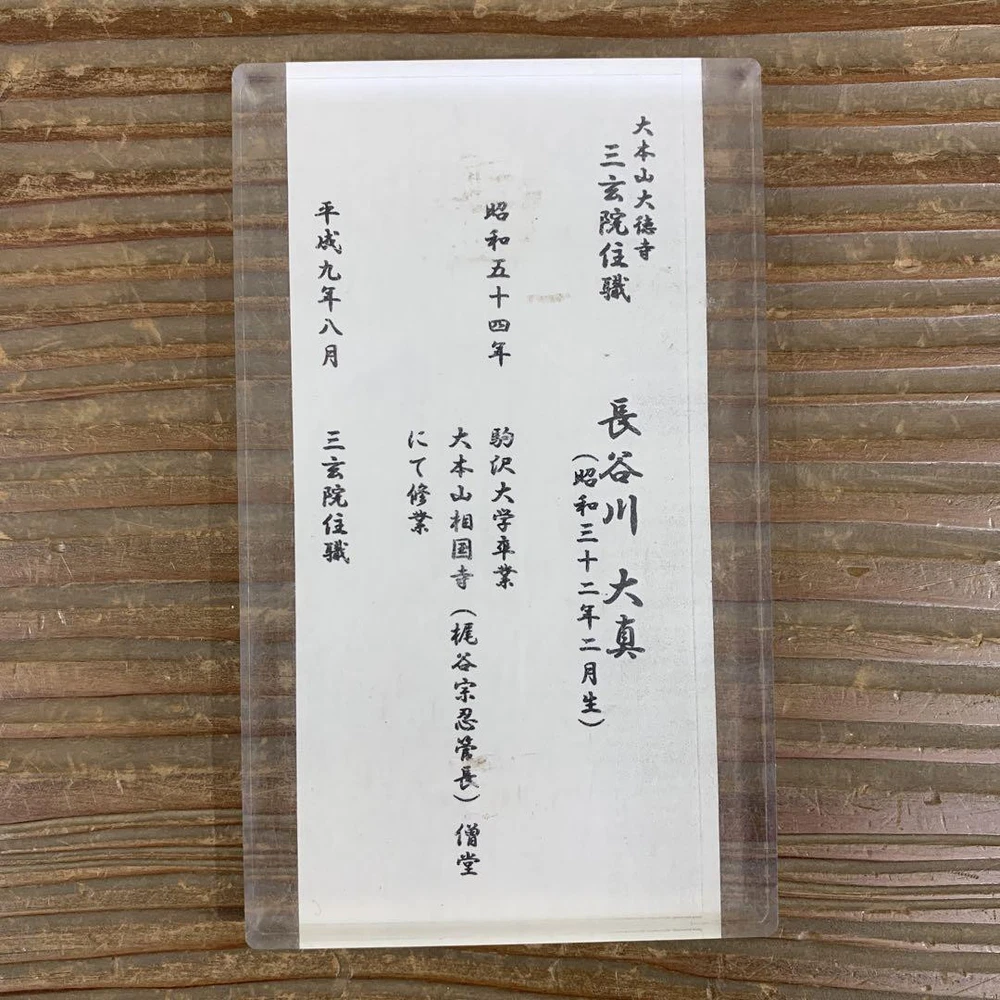 大本山大徳寺
三玄院住職
長谷川 大真
（昭和三十二年二月生）
昭和五十四年 駒沢大学卒業
大本山相国寺（梶谷宗忍管長）僧堂
にて修業
平成九年八月 三玄院住職